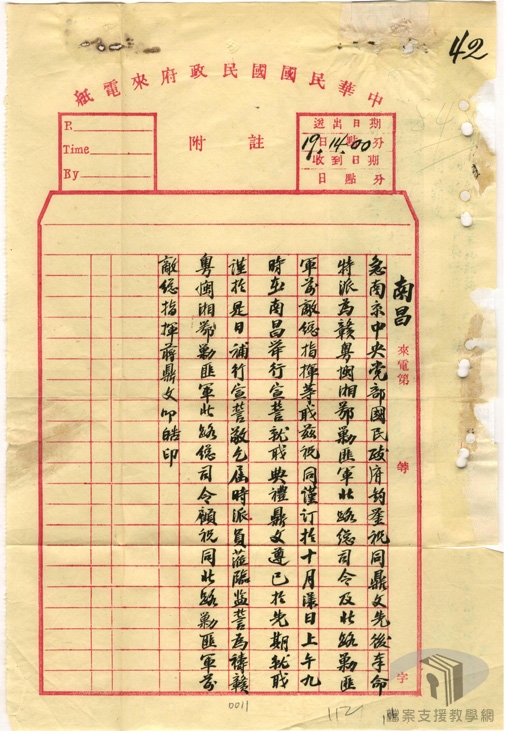 42
中華民國國民政府來電紙
進出日期
19日14點00分
收到日期
日點分
附註
R.
Time
By
南昌
來電第
等
字
急南京中央党部國民政府鈞鉴祝同鼎文先後奉命
特派為贛粵閩湘鄂剿匪軍北路總司令及北路剿匪
軍前敵總指揮等職茲祝同謹訂於十月漾日上午九
時在南昌举行宣誓就職典禮鼎文遵已於先期就職
謹於是日補行宣誓敬乞届時派員蒞臨監誓為禱贛
粵閩湘鄂剿匪軍北路總司令顧祝同北路剿匪軍前
敵總指揮蔣鼎文叩皓印
0011
112
檔案支援教學網